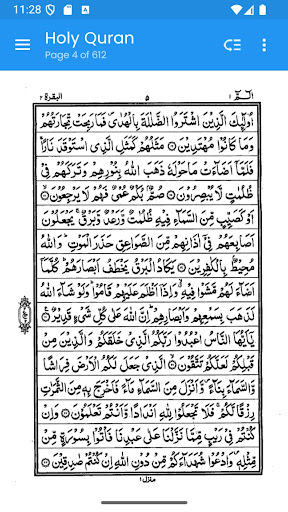 11:28
Holy Quran
Page 4 of 612
البقرة ٢
٥
الٓمّٓ ١
اُولٰٓئِكَ الَّذِيْنَ اشْتَرَوُا الضَّلٰلَةَ بِالْهُدٰى فَمَا رَبِحَتْ تِّجَارَتُهُمْ
وَمَا كَانُوْا مُهْتَدِيْنَ ۝ مَثَلُهُمْ كَمَثَلِ الَّذِى اسْتَوْقَدَ نَارًا
فَلَمَّآ اَضَآءَتْ مَا حَوْلَهٗ ذَهَبَ اللّٰهُ بِنُوْرِهِمْ وَتَرَكَهُمْ فِىْ
ظُلُمٰتٍ لَّا يُبْصِرُوْنَ ۝ صُمٌّۢ بُكْمٌ عُمْىٌ فَهُمْ لَا يَرْجِعُوْنَ ۝
اَوْ كَصَيِّبٍ مِّنَ السَّمَآءِ فِيْهِ ظُلُمٰتٌ وَّرَعْدٌ وَّبَرْقٌ يَجْعَلُوْنَ
اَصَابِعَهُمْ فِىْٓ اٰذَانِهِمْ مِّنَ الصَّوَاعِقِ حَذَرَ الْمَوْتِ وَاللّٰهُ
مُحِيْطٌۢ بِالْكٰفِرِيْنَ ۝ يَكَادُ الْبَرْقُ يَخْطَفُ اَبْصَارَهُمْ كُلَّمَآ
اَضَآءَ لَهُمْ مَّشَوْا فِيْهِ وَاِذَآ اَظْلَمَ عَلَيْهِمْ قَامُوْا وَلَوْ شَآءَ اللّٰهُ
لَذَهَبَ بِسَمْعِهِمْ وَاَبْصَارِهِمْ اِنَّ اللّٰهَ عَلٰى كُلِّ شَىْءٍ قَدِيْرٌ ۝
يٰٓاَيُّهَا النَّاسُ اعْبُدُوْا رَبَّكُمُ الَّذِىْ خَلَقَكُمْ وَالَّذِيْنَ مِنْ
قَبْلِكُمْ لَعَلَّكُمْ تَتَّقُوْنَ ۝ الَّذِىْ جَعَلَ لَكُمُ الْاَرْضَ فِرَاشًا
وَّالسَّمَآءَ بِنَآءً وَّاَنْزَلَ مِنَ السَّمَآءِ مَآءً فَاَخْرَجَ بِهٖ مِنَ الثَّمَرٰتِ
رِزْقًا لَّكُمْ فَلَا تَجْعَلُوْا لِلّٰهِ اَنْدَادًا وَّاَنْتُمْ تَعْلَمُوْنَ ۝ وَاِنْ
كُنْتُمْ فِىْ رَيْبٍ مِّمَّا نَزَّلْنَا عَلٰى عَبْدِنَا فَاْتُوْا بِسُوْرَةٍ مِّنْ
مِّثْلِهٖ وَادْعُوْا شُهَدَآءَكُمْ مِّنْ دُوْنِ اللّٰهِ اِنْ كُنْتُمْ صٰدِقِيْنَ ۝
منزل ١